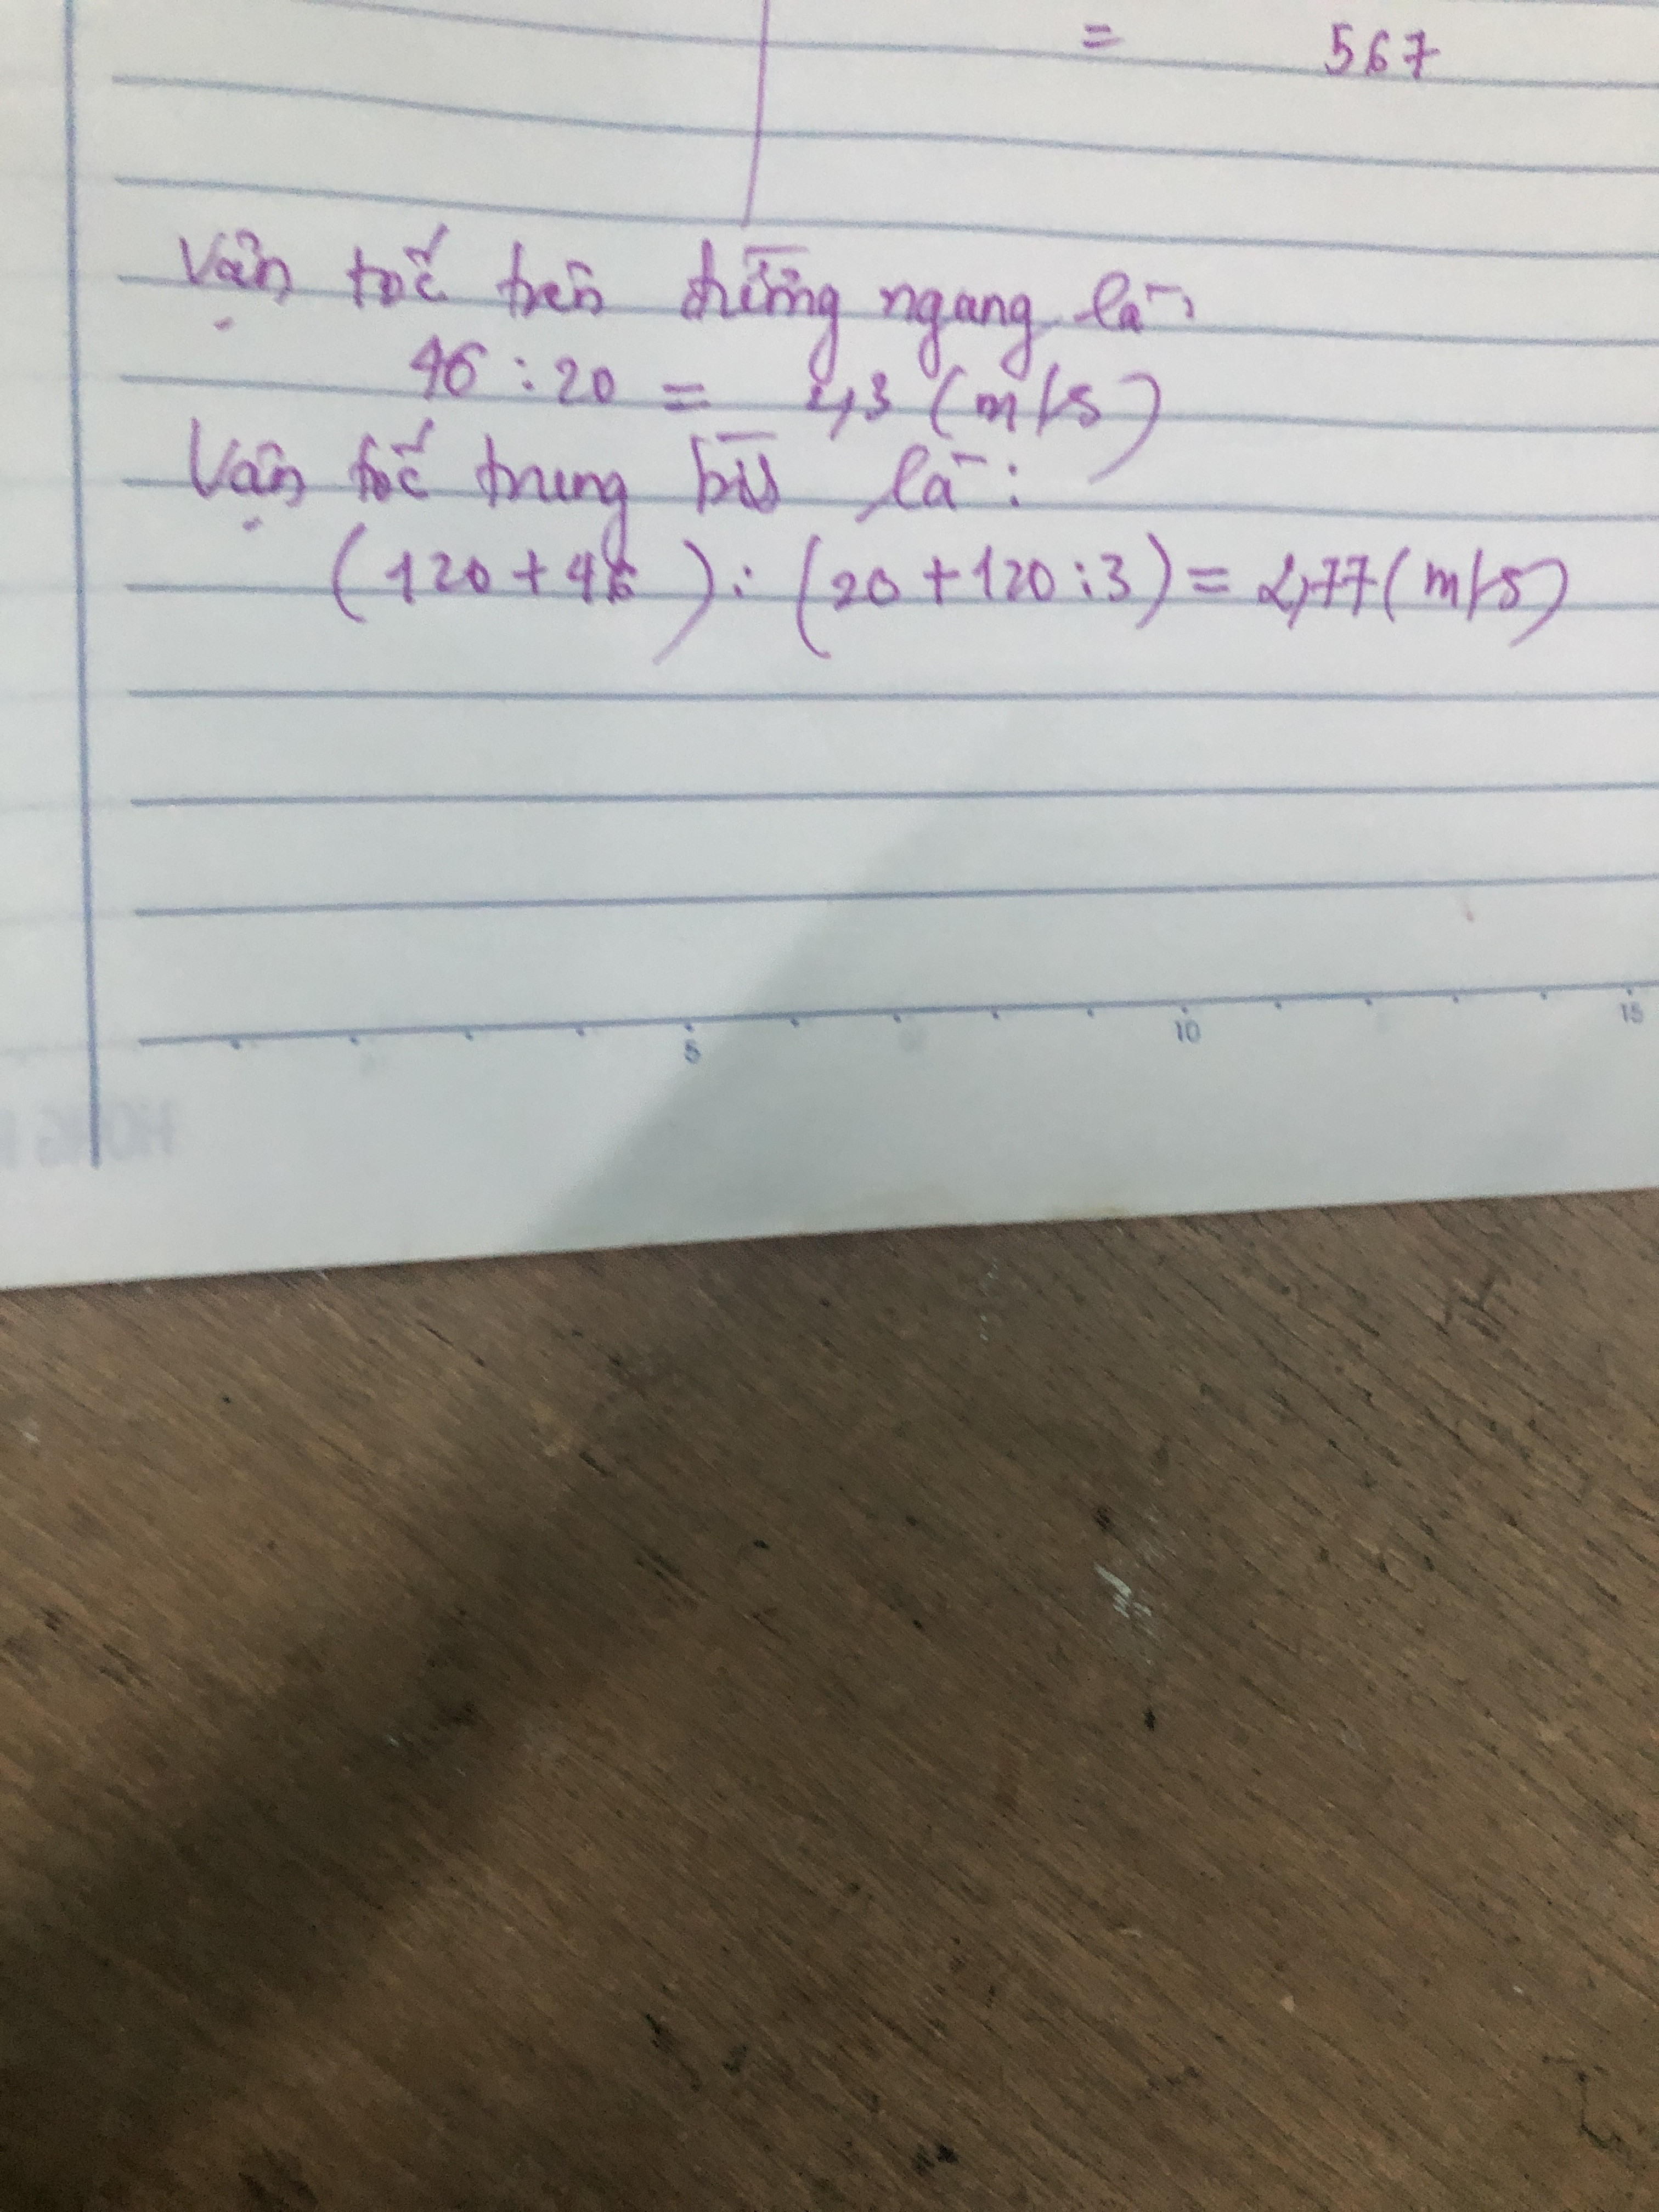 = 567
Vận tốc trên đường ngang là:
46 : 20 = 2,3 (m/s)
Vận tốc trung bình là:
(120 + 46) : (20 + 120 : 3) = 2,77 (m/s)
5 10 15